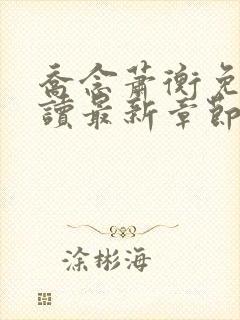 喬念蕭衡免
讀最新章節
涂彬海